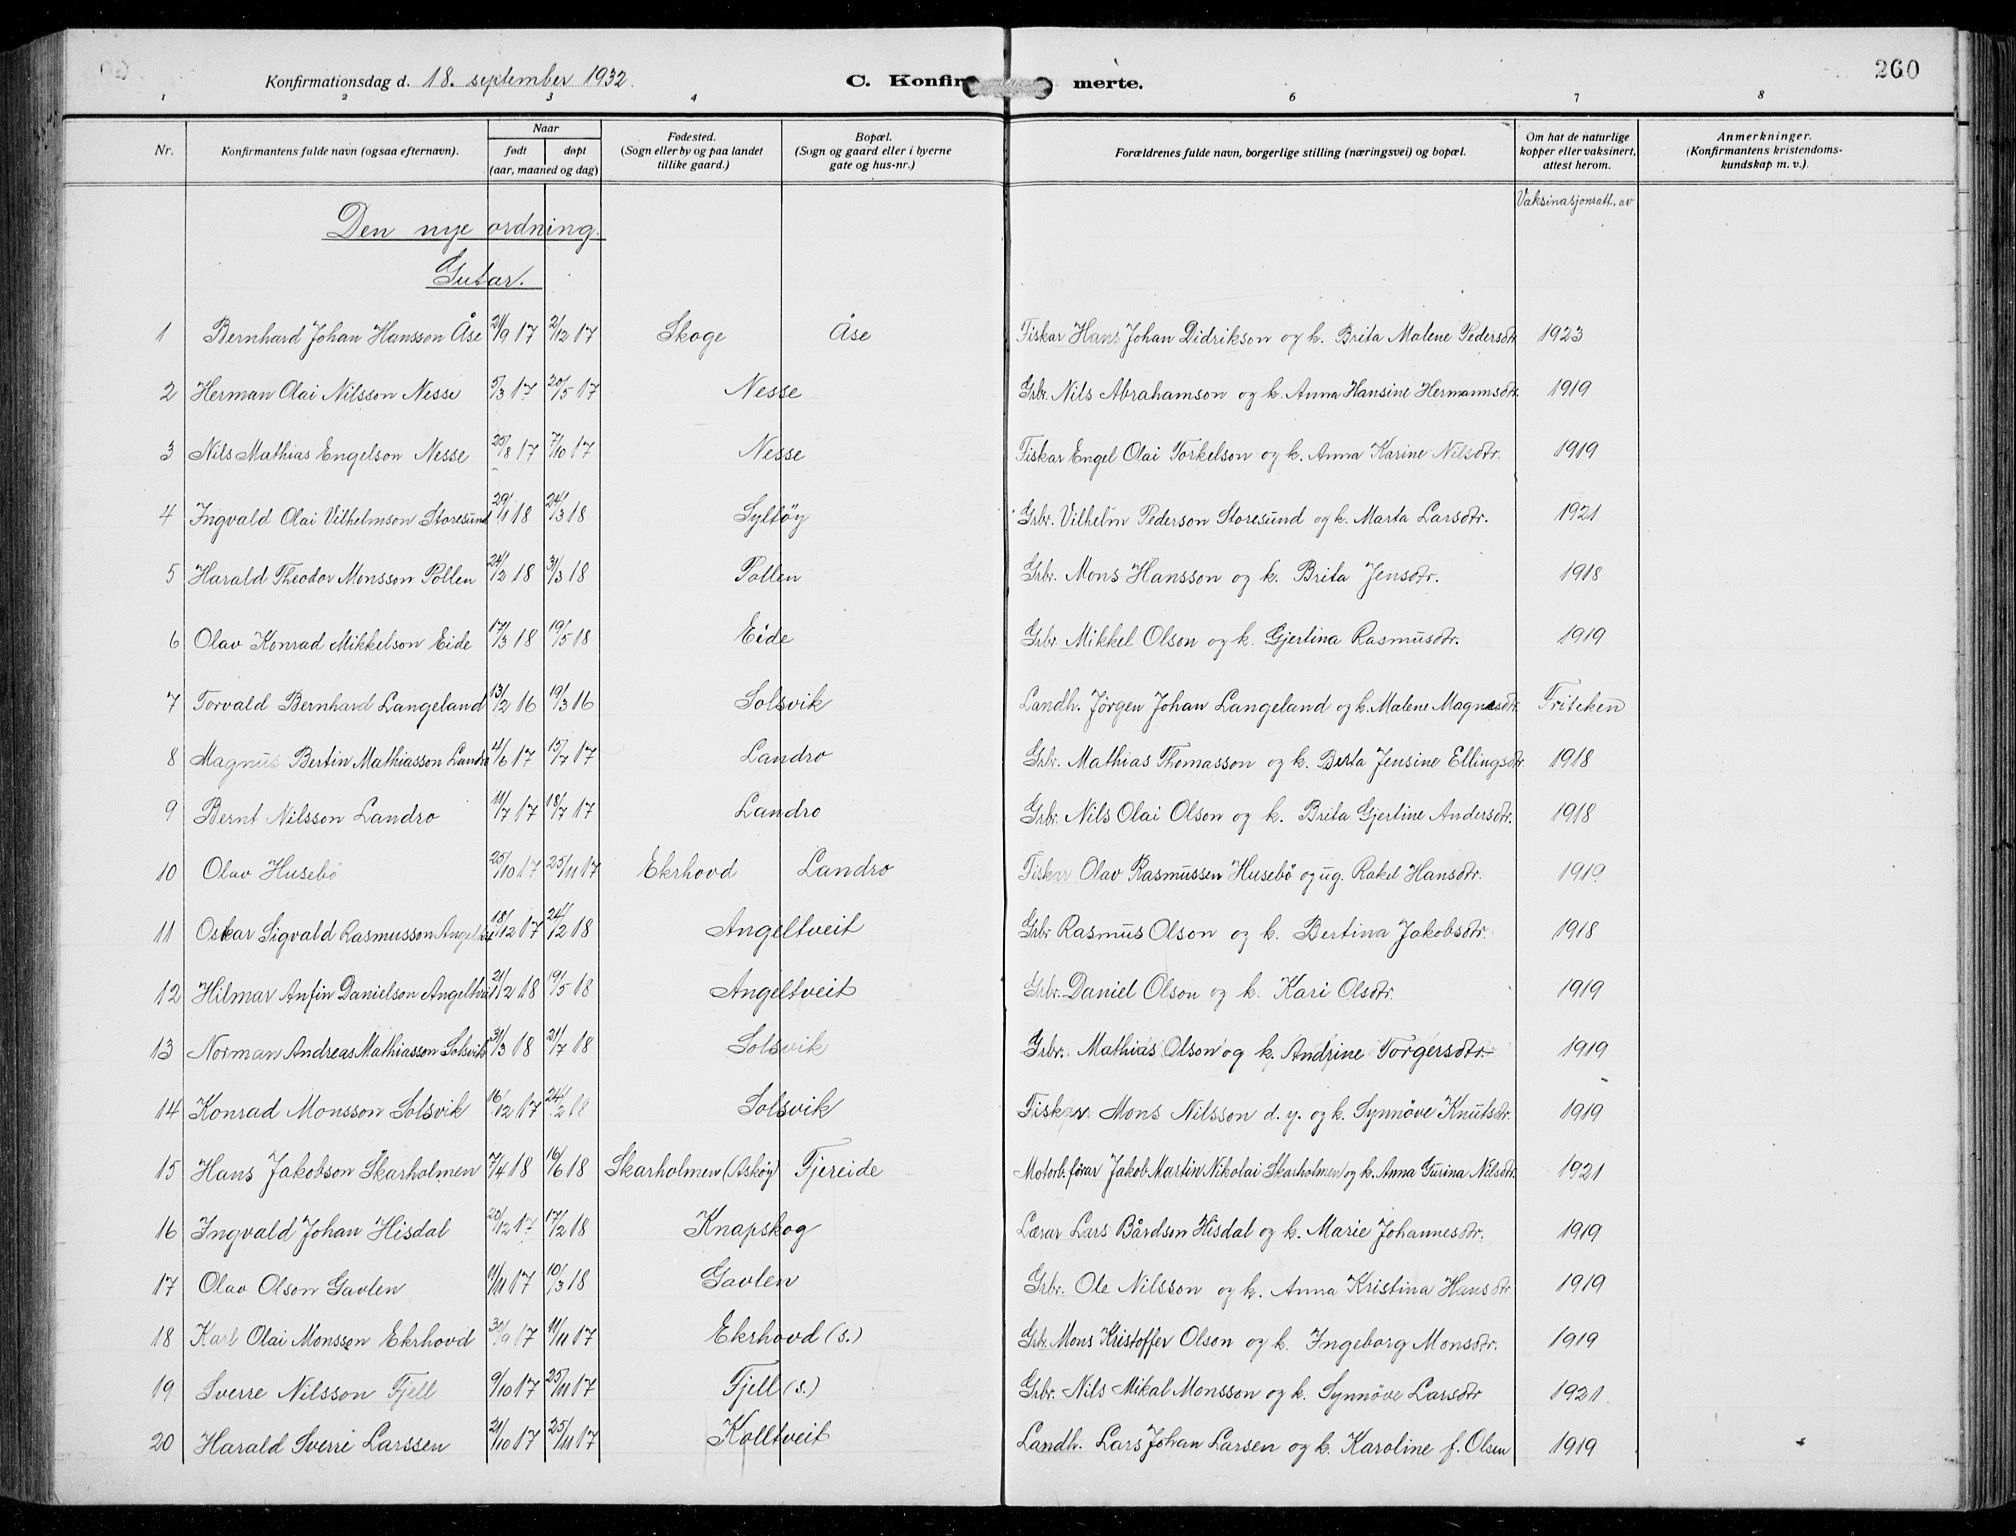 260
Konfirmationsdag d. 18. september 1932.
C. Konfirmerte.
1 2 3 4 6 7 8
Nr. Konfirmantens fulde navn (ogsaa efternavn). Naar født døpt (aar, maaned og dag) Fødested. (Sogn eller by og paa landet tillike gaard.) Bopæl. (Sogn og gaard eller i byerne gate og hus-nr.) Forældrenes fulde navn, borgerlige stilling (næringsvei) og bopæl. Om hat de naturlige kopper eller vaksinert, attest herom. Anmerkninger. (Konfirmantens kristendoms-kundskap m. v.).
Vaksinasjonsatt. av
Den nye ordning.
Gutar.
1 Bernhard Johan Hansson Åse 21/9 17 2/12 17 Skoge Åse Fiskar Hans Johan Didrikson og k. Brita Malene Pedersdtr. 1923
2 Herman Olai Nilsson Nesse 5/3 17 20/5 17 Nesse Grbr. Nils Abrahamson og k. Anna Hansine Hermannsdtr. 1919
3 Nils Mathias Engelson Nesse 25/8 17 7/10 17 Nesse Fiskar Engel Olai Torkelson og k. Anna Karine Nilsdtr. 1919
4 Ingvald Olai Vilhelmson Storesund 29/1 18 24/3 18 Syltøy Grbr. Vilhelm Pederson Storesund og k. Marta Larsdtr. 1921
5 Harald Theodor Monsson Pollen 24/2 18 31/3 18 Pollen Grbr. Mons Hansson og k. Brita Jensdtr. 1918
6 Olav Konrad Mikkelson Eide 17/3 18 19/5 18 Eide Grbr. Mikkel Olson og k. Gjertina Rasmusdtr. 1919
7 Torvald Bernhard Langeland 13/2 16 19/3 16 Solsvik Landh. Jørgen Johan Langeland og k. Malene Magnesdtr. Friteken
8 Magnus Bertin Mathiasson Landro 4/6 17 15/7 17 Landro Grbr. Mathias Thomasson og k. Berta Jensine Ellingsdtr. 1918
9 Bernt Nilsson Landro 11/7 17 18/7 17 Landro Grbr. Nils Olai Olson og k. Brita Gjertine Andersdtr. 1918
10 Olav Husebø 25/10 17 25/11 17 Ekrhovd Landro Fiskar Olav Rasmussen Husebö og ug. Rakel Hansdtr. 1919
11 Oskar Sigvald Rasmusson Angeltveit 18/12 17 24/2 18 Angeltveit Grbr Rasmus Olson og k. Bertina Jakobsdtr. 1918
12 Hilmar Anfin Danielson Angeltveit 21/2 18 19/5 18 Angeltveit Grbr. Daniel Olson og k. Kari Olsdtr. 1919
13 Norman Andreas Mathiasson Solsvik 31/3 18 21/7 18 Solsvik Grbr. Mathias Olson og k. Andrine Torgersdtr. 1919
14 Konrad Monsson Solsvik 16/12 17 24/2 18 Solsvik Fiskar. Mons Nilsson d. y. og k. Synnöve Knutsdtr. 1919
15 Hans Jakobson Skarholmen 7/4 18 16/6 18 Skarholmen (Askøy) Fjereide Motorb.förar Jakob Martin Nikolai Skarholmen og k. Anna Gurina Nilsdtr. 1921
16 Ingvald Johan Hisdal 20/12 17 17/2 18 Knapskog Lærar Lars Bårdson Hisdal og k. Marie Johannesdtr. 1919
17 Olav Olson Gavlen 11/11 17 10/3 18 Gavlen Grbr. Ole Nilsson og k. Anna Kristina Hansdtr 1919
18 Karl Olai Monsson Ekrhovd 30/9 17 11/11 17 Ekrhovd (s.) Grbr. Mons Kristoffer Olson og k. Ingeborg Monsdtr. 1919
19 Sverre Nilsson Fjell 9/10 17 25/11 17 Fjell (s.) Grbr. Nils Mikal Monsson og k. Synnöve Larsdtr 1921.
20 Harald Sverre Larssen 21/10 17 25/11 17 Kolltveit Landh. Lars Johan Larsen og k. Karoline f. Olsen 1919